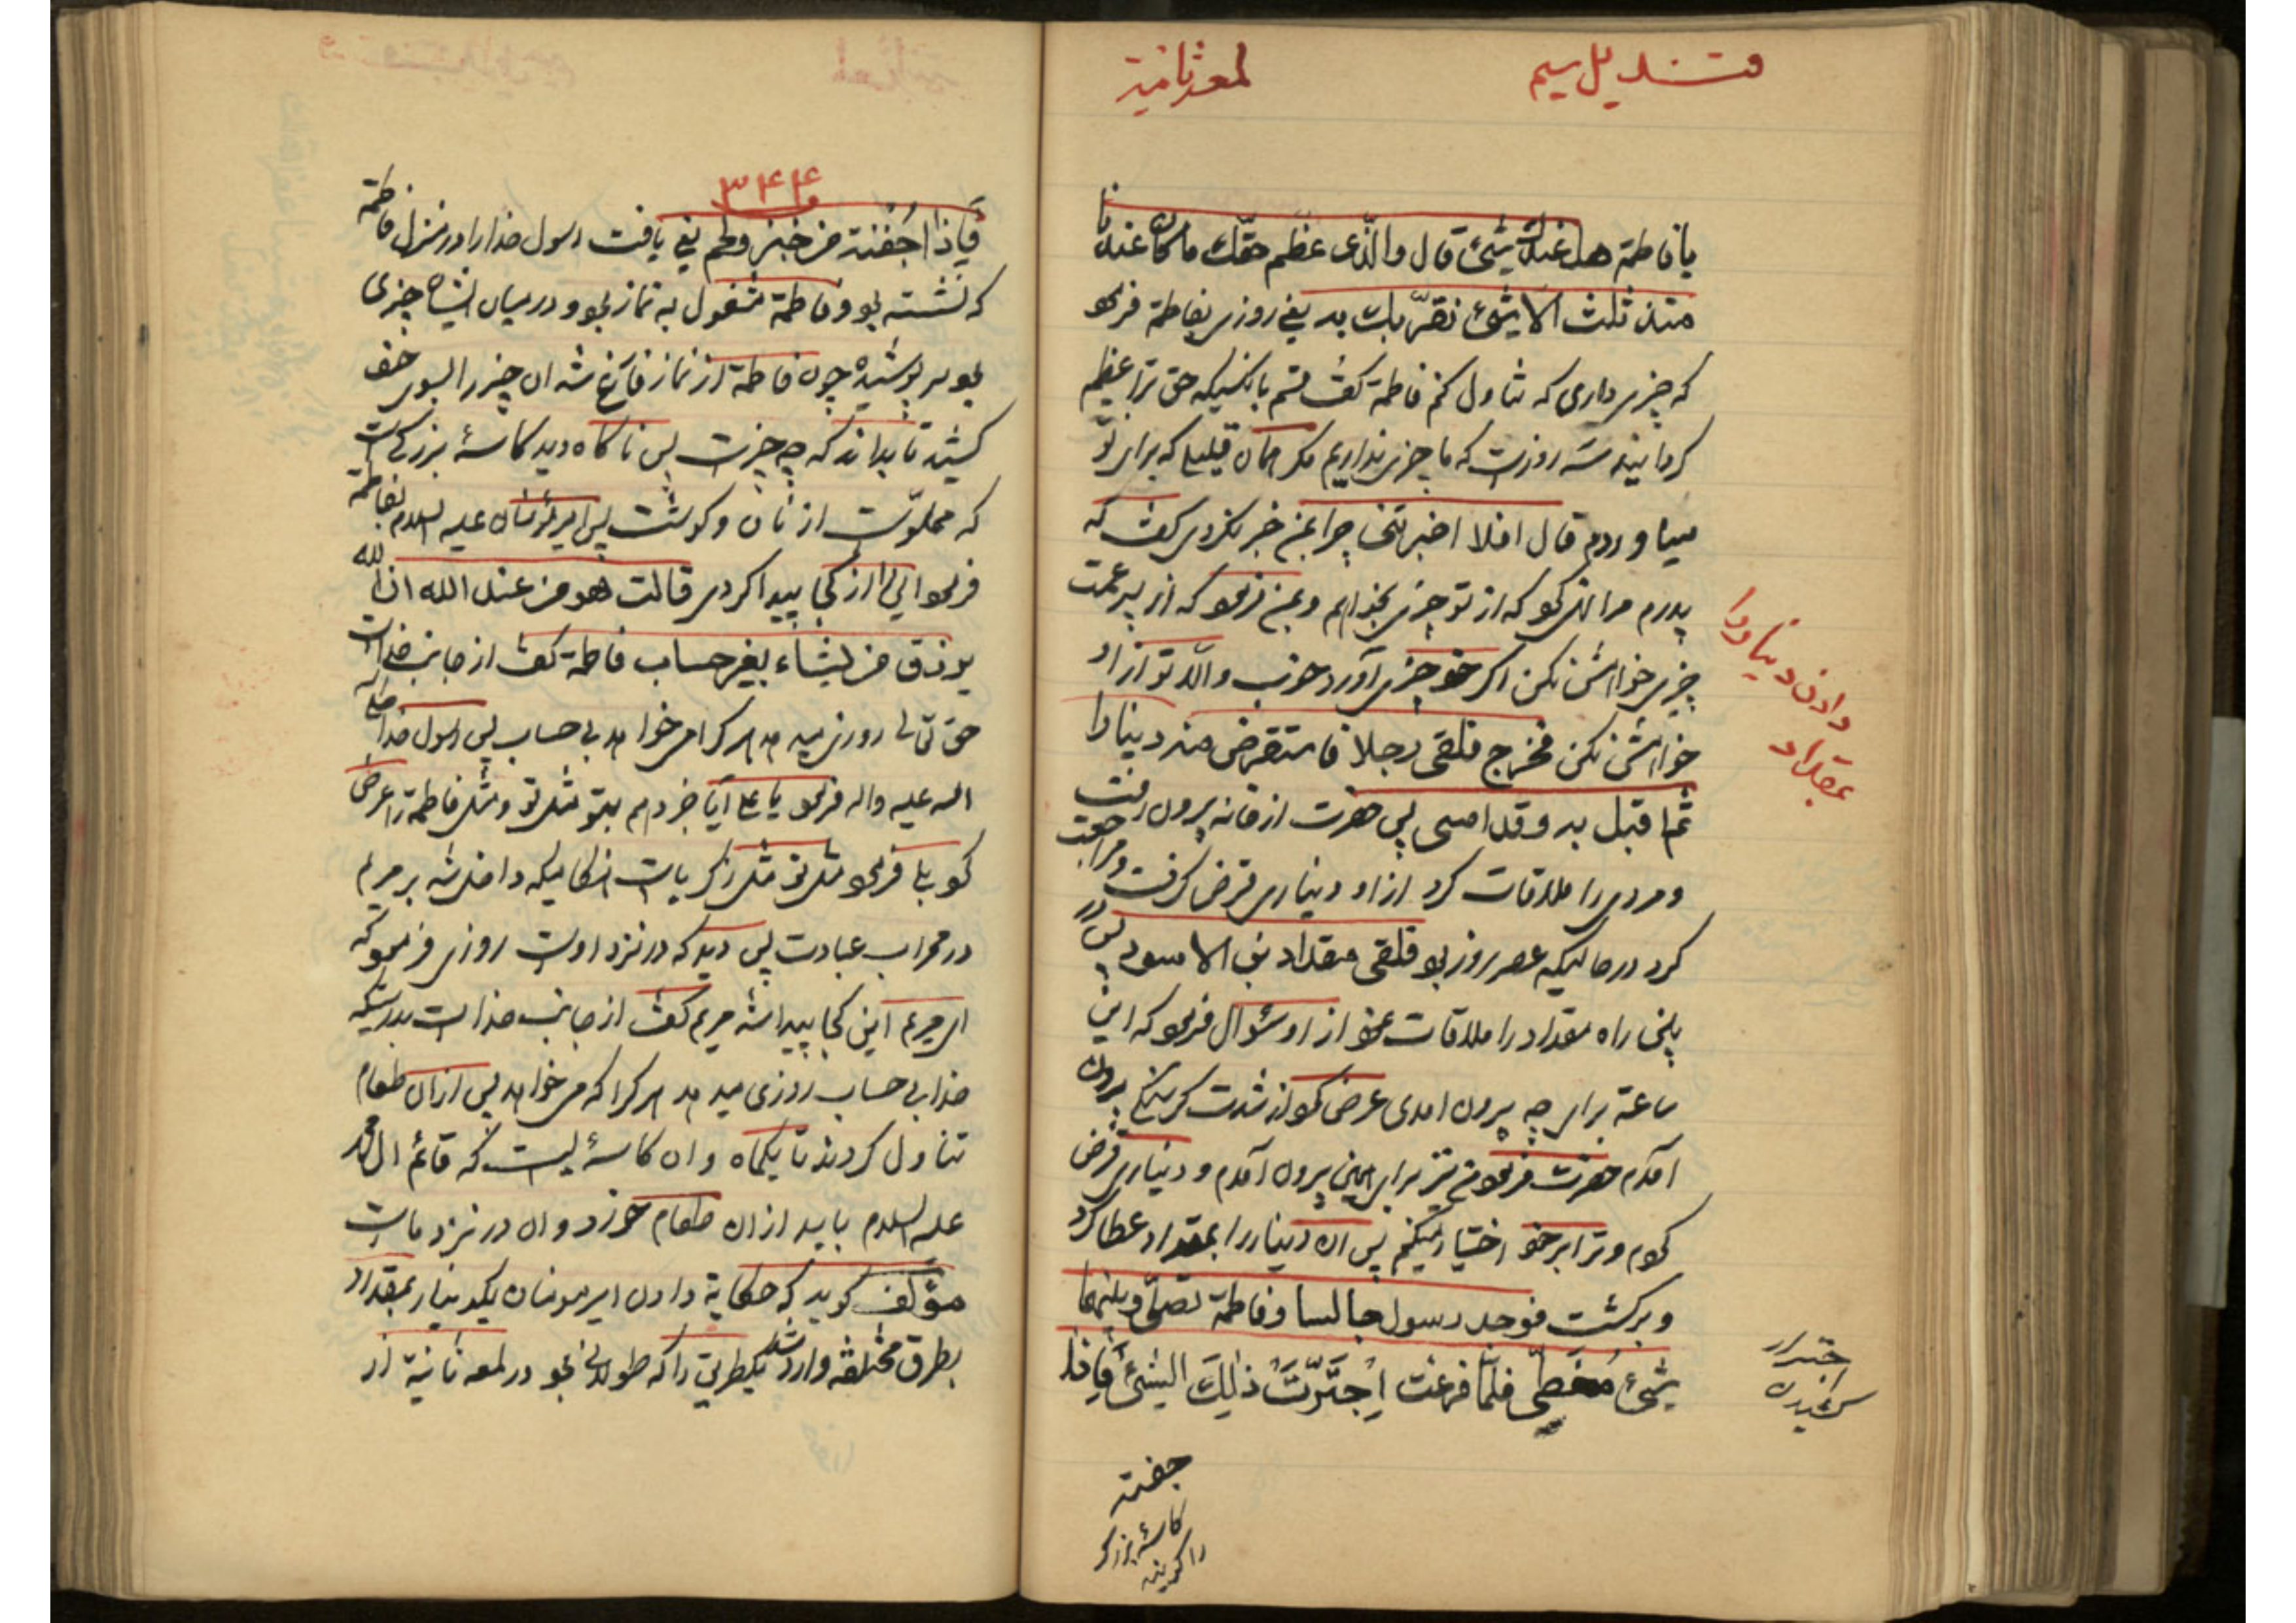 قندیل سیم
لمعه ثانیة
یا فاطمة هل عندك شیئ قال والذی عظم حقّك ما کان عندنا
منذ ثلث الا شیئ نقرّبك به یعنی روزی بفاطمة فرمود
که چیزی داری که تناول کنم فاطمة گفت قسم بآنکسیکه حق ترا عظیم
گردانیده سه روزست که ما چیزی نداریم مگر همان قلیلی که برای تو
میآوردم قال افلا اخبرتنی چرا بمن خبر نکردی گفت که
پدرم مرا نهی نمود که از تو چیزی بخواهم و بمن فرمود که از پسر عمت
چیزی خواهش نکن اگر خود چیزی آورد خوب والّا تو از او
خواهش نکن فخرج فلقی رجلا فاستقرض منه دینارا
ثم اقبل به وقد امسی پس حضرت از خانه بیرون رفت
و مردی را ملاقات کرد از او دیناری قرض گرفت و مراجعت
کرد در حالیکه عصر روز بود فلقی مقداد بن الاسود پس در
راه مقداد را ملاقات نمود از او سئوال فرمود که این
ساعة برای چه بیرون امدی عرض نمود از شدت گرسنگی بیرون
آمدم حضرت فرمود من نیز برای همین بیرون آمدم و دیناری قرض
نمودم و ترا بر خود اختیار میکنم پس ان دینار را بمقداد عطا کرد
و برگشت فوجد رسول جالسا و فاطمة تصلّی و بینهما
شیئ مُغَطّی فلمّا فرغت اِجْتَرَّتْ ذٰلِكَ الشیئ فَاِذا
دادن دینار را
بمقداد
اجترار
کشیدن
جفنه
کاسهٔ بزرگ
را گویند
۳۴۴
فَاِذا جُفْنة من خبز و لحم یعنی یافت رسول خدا را در منزل فاطمة
که نشسته بود و فاطمة مشغول به نماز بود و در میان ایشان چیزی
بود سر پوشیده چون فاطمة از نماز فارغ شد ان چیز را بسوی خود
کشید تا بداند که چه چیزست پس ناگاه دید کاسهٔ بزرگ است
که مملوّست از نان و گوشت پس امیر مؤمنان علیه السلام بفاطمة
فرمود این را از کجا پیدا کردی قالت هو من عند الله ان الله
یرزق من یشاء بغیر حساب فاطمة گفت از جانب خداست
حق تعالی روزی میدهد هر که را می خواهد بی حساب پس رسول خدا صلی
الله علیه واله فرمود یا علی آیا خبر دهم بتو مثل تو و مثل فاطمة را عرض
نمود بلی فرمود مثل تو مثل زکریاست هنگامیکه داخل شد بر مریم
در محراب عبادت پس دید که در نزد اوست روزی فرمود که
ای مریم این کجا پیدا شد مریم گفت از جانب خداست بدرستیکه
خدا بی حساب روزی میدهد هر که را که می خواهد پس از ان طعام
تناول کردند تا یکماه و ان کاسهٔ ایست که قائم ال محمد
علیه السلام باید از ان طعام خورد و ان در نزد ماست
مؤلف گوید که حکایة دادن امیر مومنان یکدینار بمقداد
بطرق مختلفه وارد شد یکطریق را که طولانی بود در لمعه ثانیة از